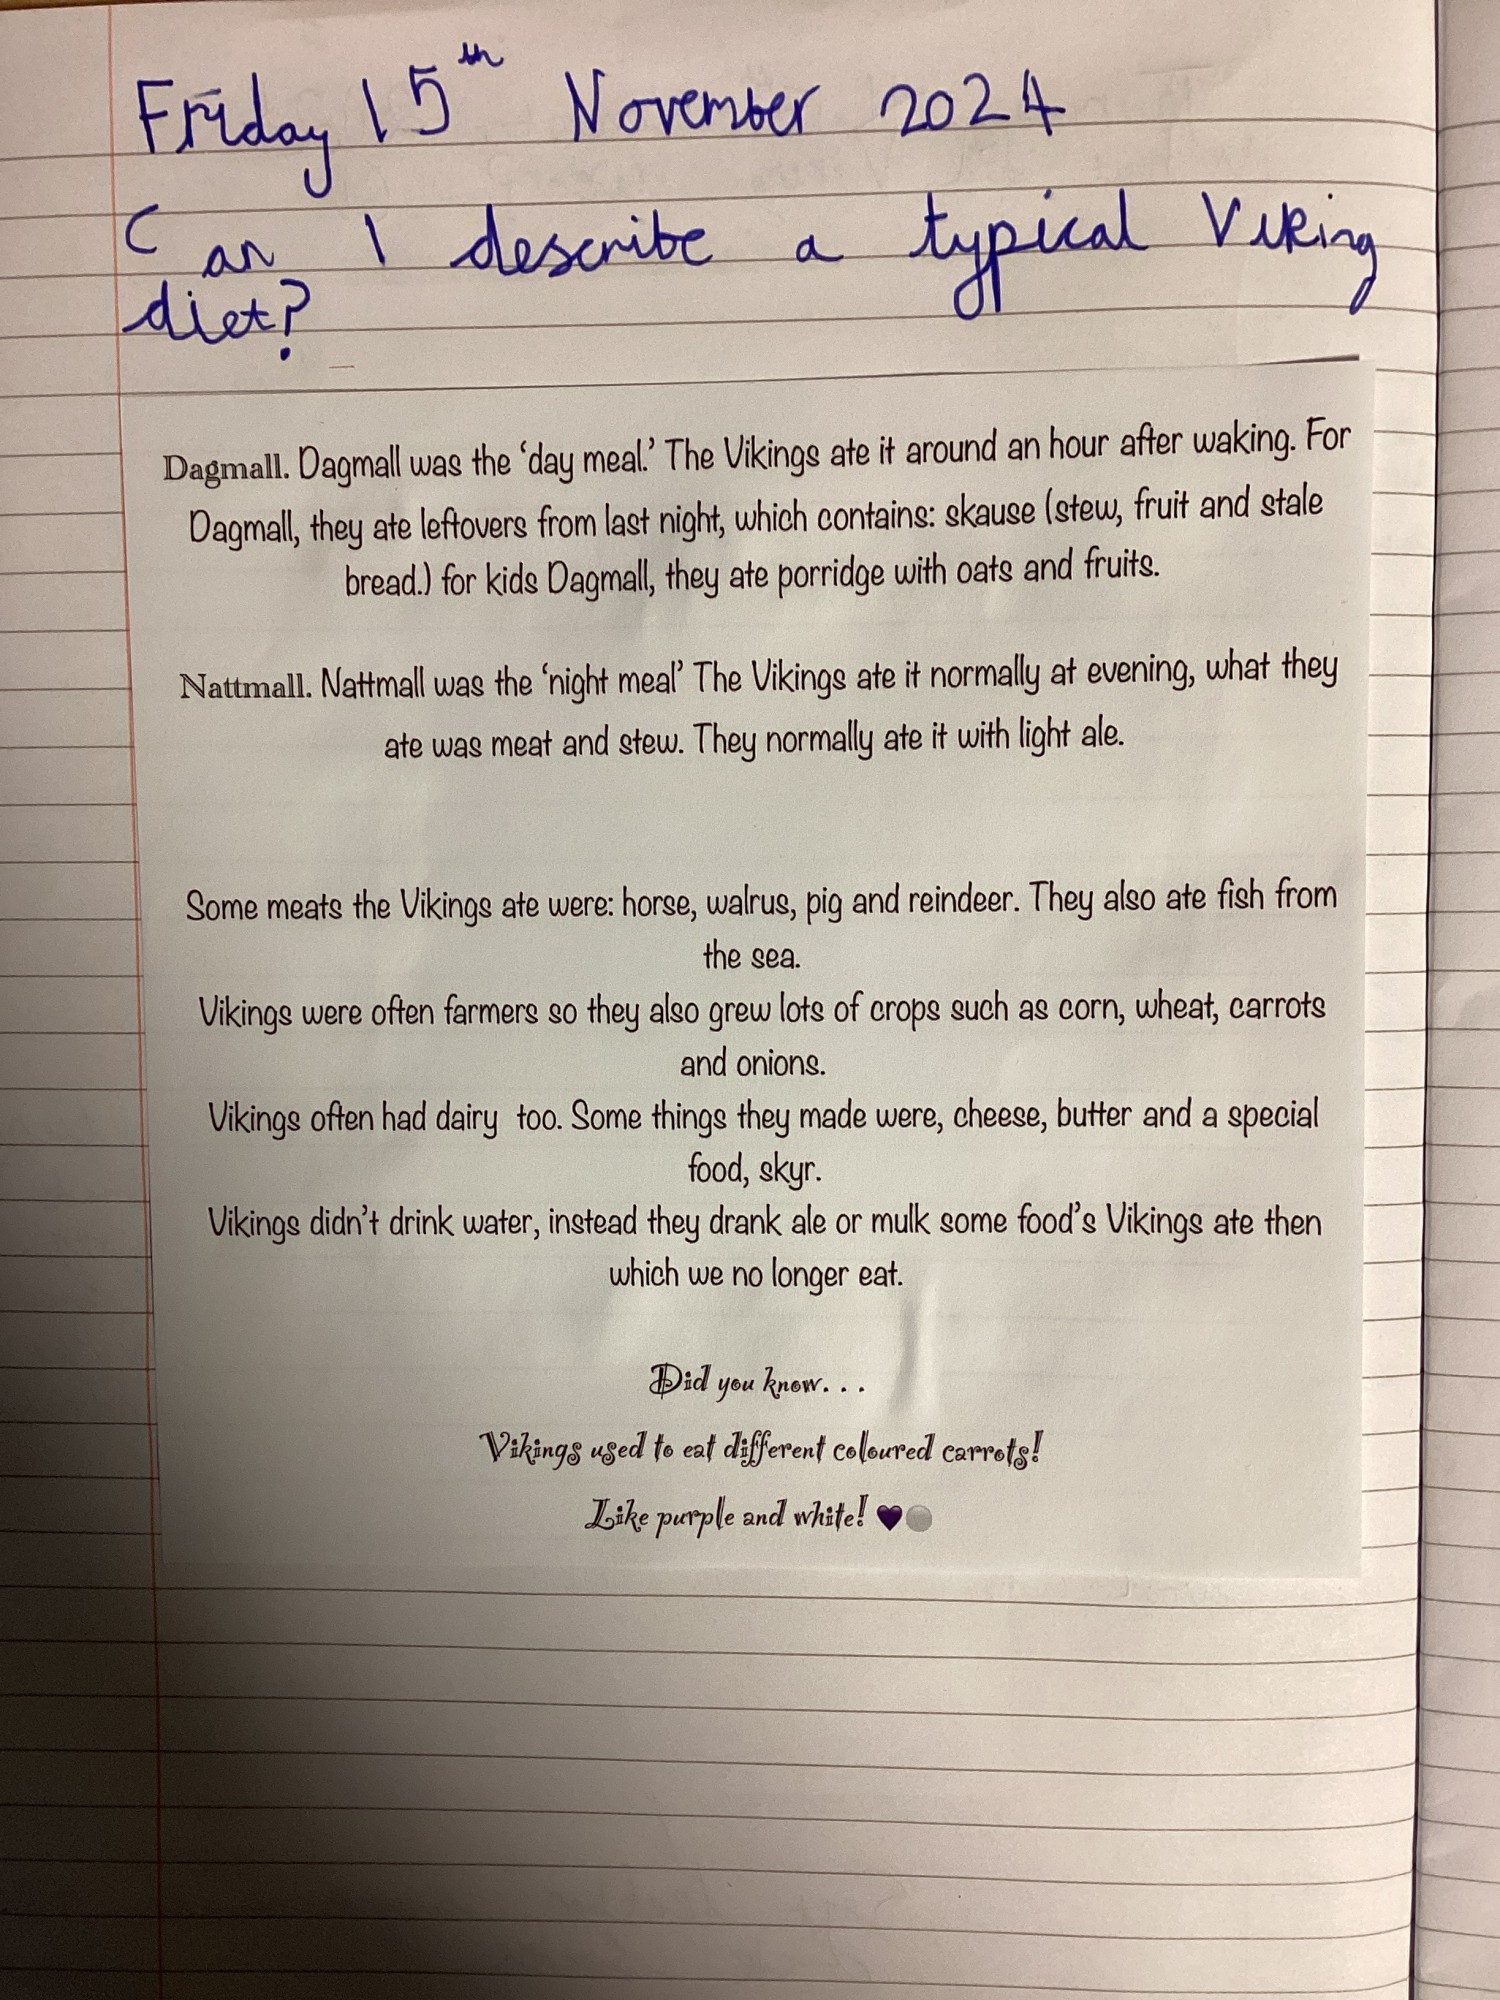 Friday 15th November 2024
Can I describe a typical Viking
diet?
Dagmall. Dagmall was the ‘day meal.’ The Vikings ate it around an hour after waking. For
Dagmall, they ate leftovers from last night, which contains: skause (stew, fruit and stale
bread.) for kids Dagmall, they ate porridge with oats and fruits.
Nattmall. Nattmall was the ‘night meal’ The Vikings ate it normally at evening, what they
ate was meat and stew. They normally ate it with light ale.
Some meats the Vikings ate were: horse, walrus, pig and reindeer. They also ate fish from
the sea.
Vikings were often farmers so they also grew lots of crops such as corn, wheat, carrots
and onions.
Vikings often had dairy  too. Some things they made were, cheese, butter and a special
food, skyr.
Vikings didn’t drink water, instead they drank ale or mulk some food’s Vikings ate then
which we no longer eat.
Did you know. . .
Vikings used to eat different coloured carrots!
Like purple and white! 💜⚪